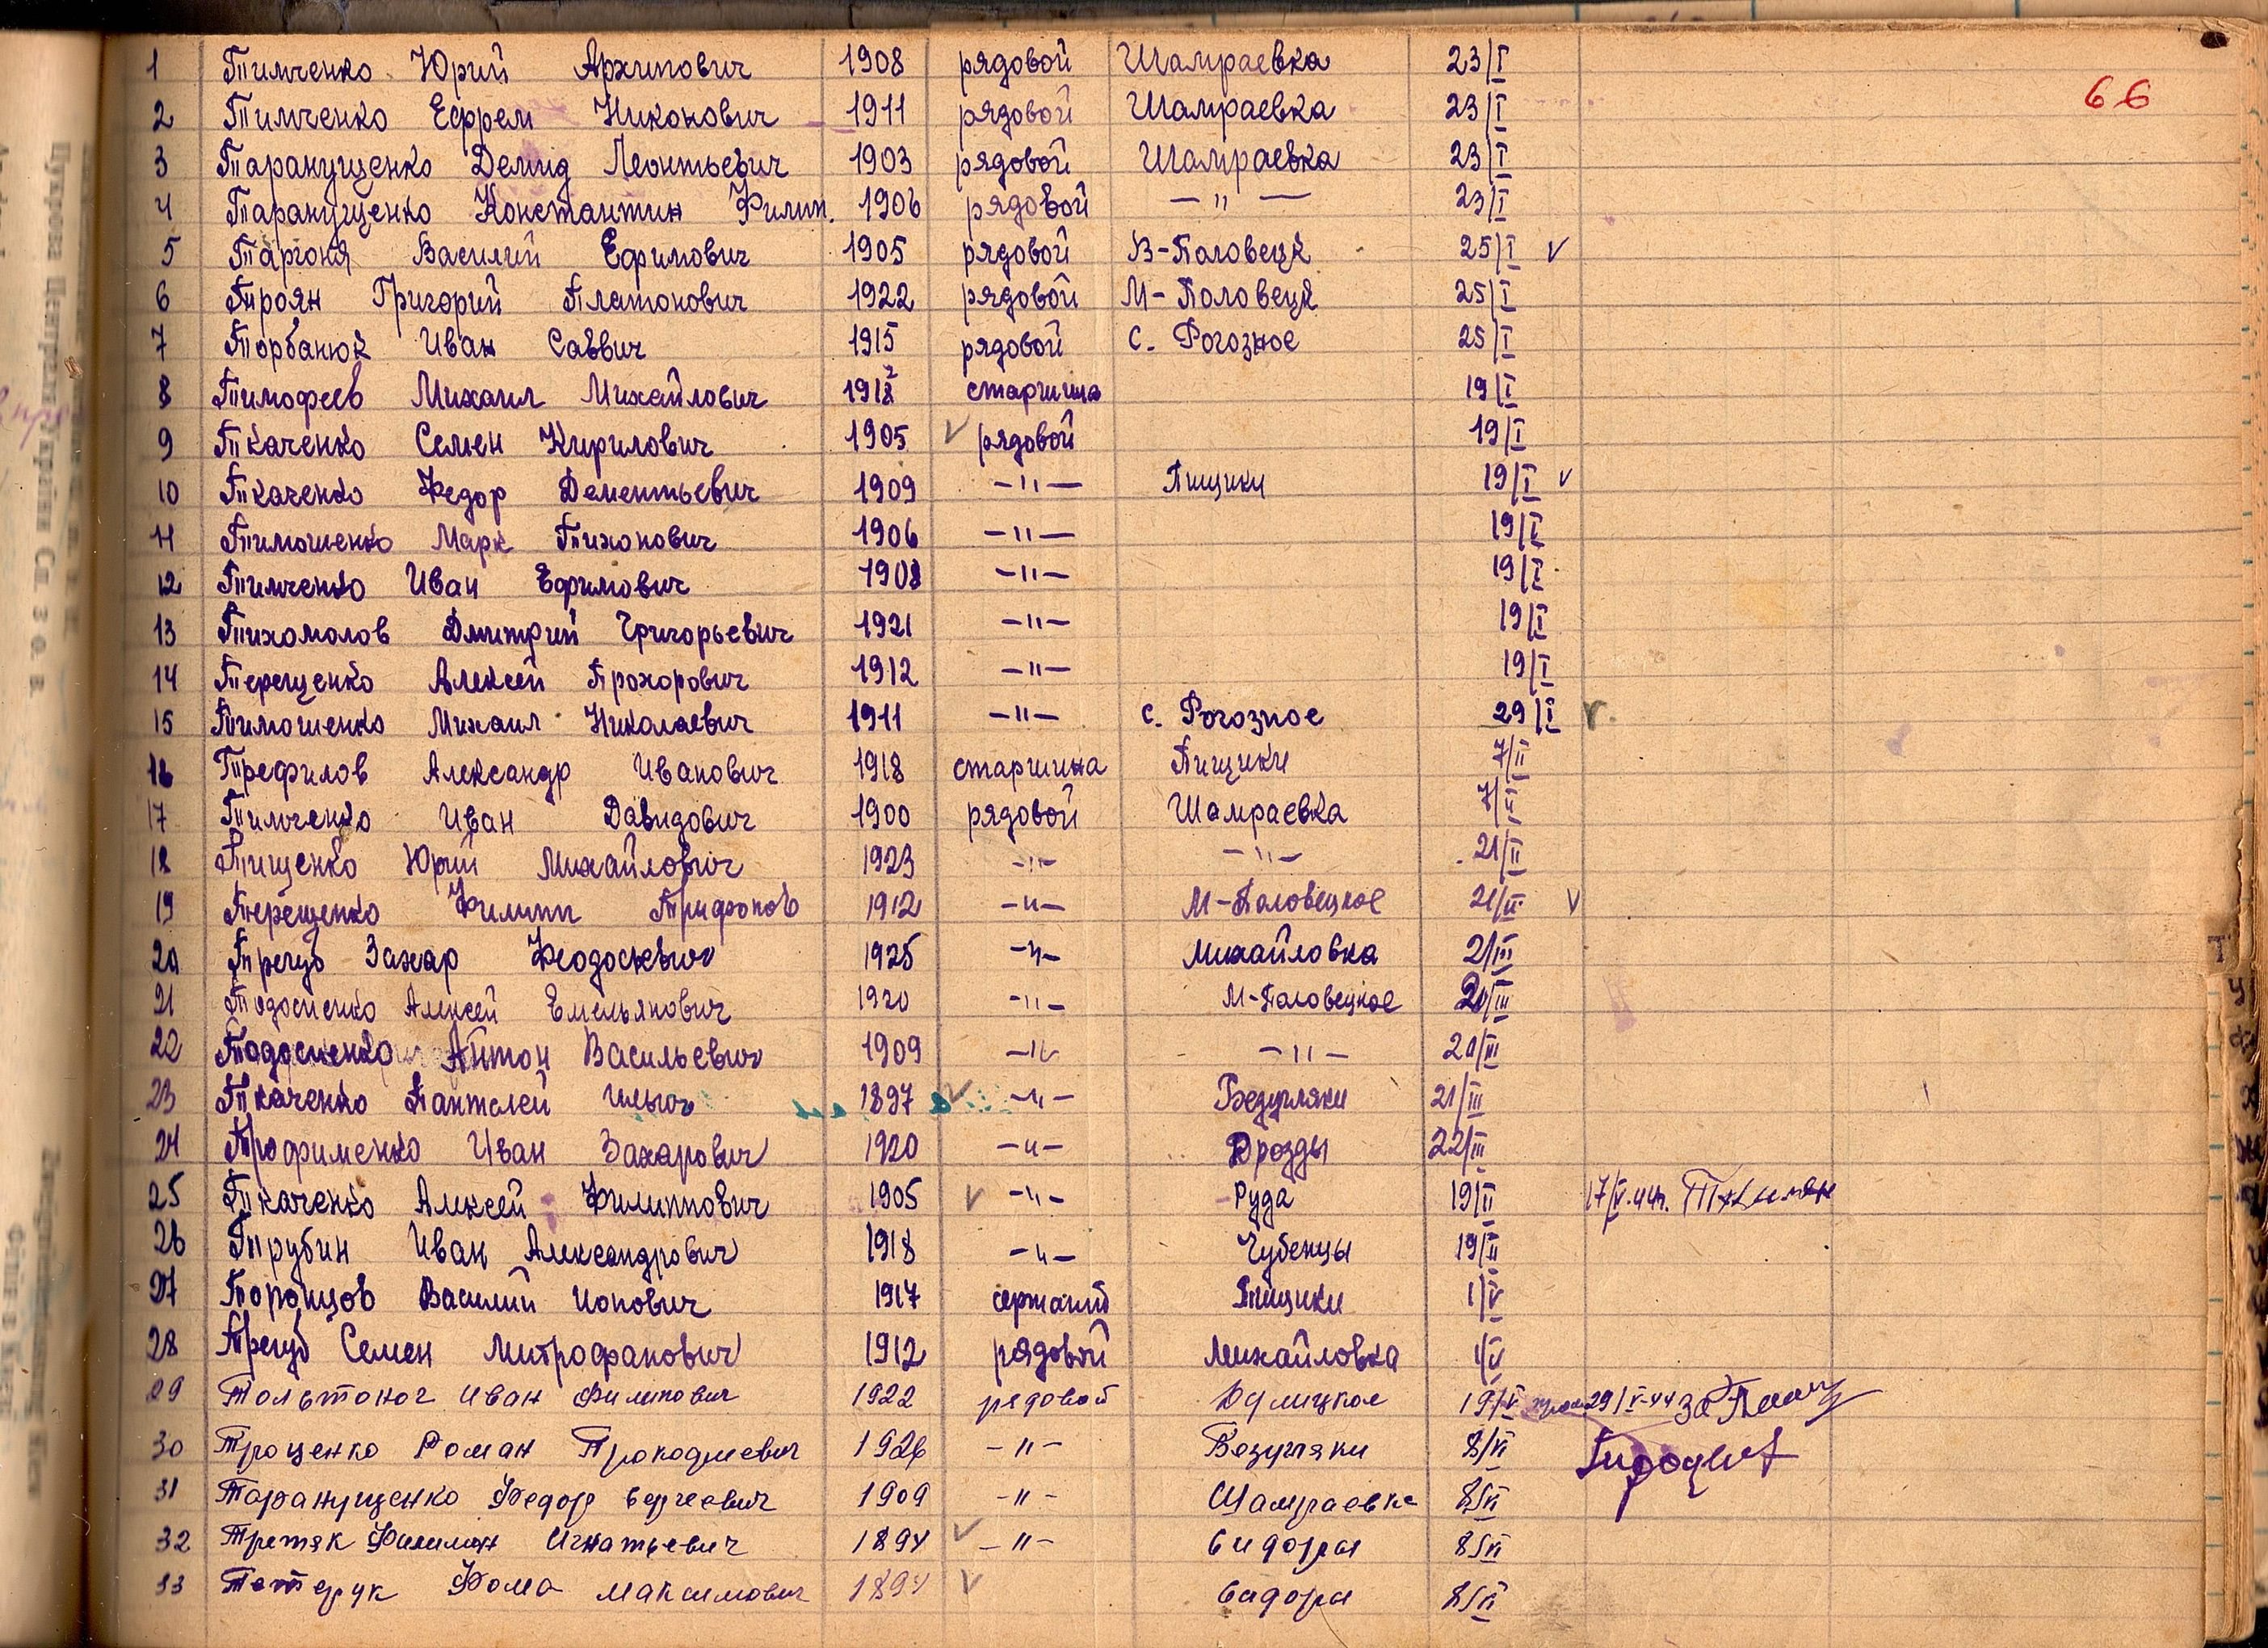 66
1 Тимченко Юрий Архипович 1908 рядовой Шамраевка 23/I
2 Тимченко Ефрем Никонович 1911 рядовой Шамраевка 23/I
3 Таранущенко Демид Леонтьевич 1903 рядовой Шамраевка 23/I
4 Таранущенко Константин Филип. 1906 рядовой —"— 23/I
5 Таргоня Василий Ефимович 1905 рядовой В-Половецк 25/I V
6 Троян Григорий Платонович 1922 рядовой М-Половецк 25/I
7 Торбанюк Иван Саввич 1915 рядовой с. Рогозное 25/I
8 Тимофеев Михаил Михайлович старшина 19/I
9 Ткаченко Семен Кирилович 1905 V рядовой 19/I
10 Ткаченко Федор Дементьевич 1909 —"— Пищики 19/I V
11 Тимошенко Марк Тихонович 1906 —"— 19/I
12 Тимченко Иван Ефимович 1908 —"— 19/I
13 Тихомолов Дмитрий Григорьевич 1921 —"— 19/I
14 Терещенко Алексей Прохорович 1912 —"— 19/I
15 Тимошенко Михаил Николаевич 1911 —"— с. Рогозное 29/I V
16 Трефилов Александр Иванович 1918 старшина Пищики 7/II
17 Тимченко Иван Давидович 1900 рядовой Шамраевка 7/II
18 Тищенко Юрий Михайлович 1923 —"— —"— 21/II
19 Терещенко Филипп Трифонов 1912 —"— М-Половецкое 21/II V
20 Трегуб Захар Феодосьевич 1925 —"— Михайловка 2/III
21 Тодосиенко Алексей Емельянович 1920 —"— М-Половецкое 20/III
22 Тодосиенко Антон Васильевич 1909 —"— —"— 20/III
23 Ткаченко Пантелей Ильич 1897 V —"— Безугляки 21/III
24 Трофименко Иван Захарович 1920 —"— Дрозды 22/III
25 Ткаченко Алексей Филиппович 1905 V —"— Руда 19/II 17/V.44г.
26 Трубин Иван Александрович 1918 —"— Чубенцы 19/II
27 Торопцов Василий Ионович 1917 сержант Пищики 1/V
28 Трегуб Семен Митрофанович 1912 рядовой Михайловка 1/V
29 Тольтоног Иван Филипович 1922 рядовой 19/V 29/V-44
30 Троценко Роман Прокофиевич 1926 —"— Безугляки 8/VI
31 Таранущенко Федор Сергеевич 1909 —"— Шамраевка 8/VI
32 Третяк Филимон Игнатьевич 1894 V —"— Сидоры 8/VI
33 Тетерук Фома Максимович 1894 V Сидоры 8/VI